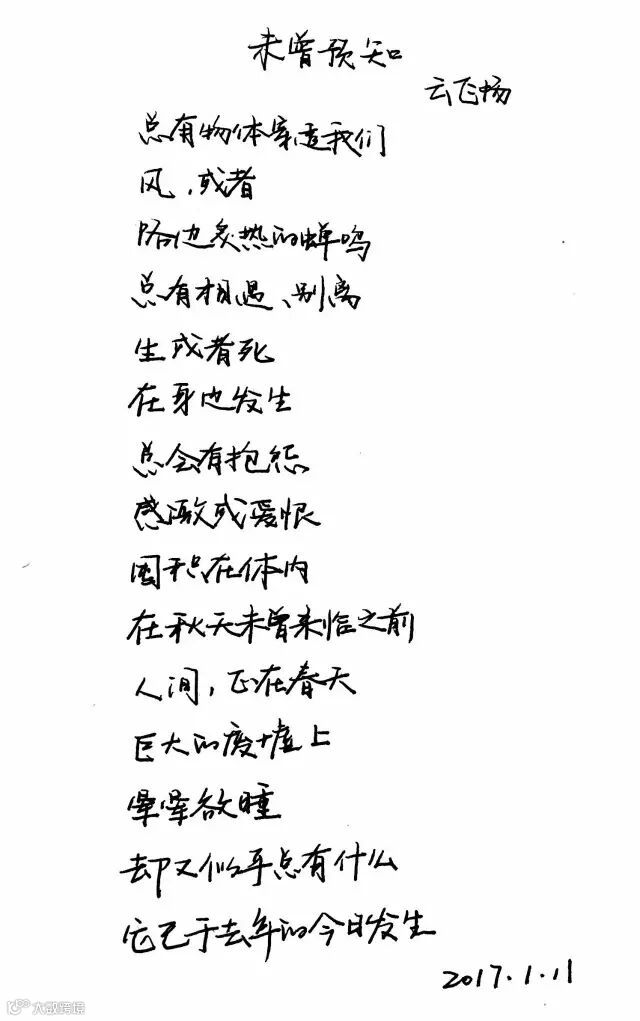 未曾预知
云飞扬
总有物体穿过我们
风、或者
路边炙热的蝉鸣
总有相遇、别离
生或者死
在身边发生
总会有抱怨
感激或爱恨
囤积在体内
在秋天未曾来临之前
人间，正在春天
巨大的废墟上
晕晕欲睡
却又似乎总有什么
它已于去年的今日发生
2017.1.11
大数跨境